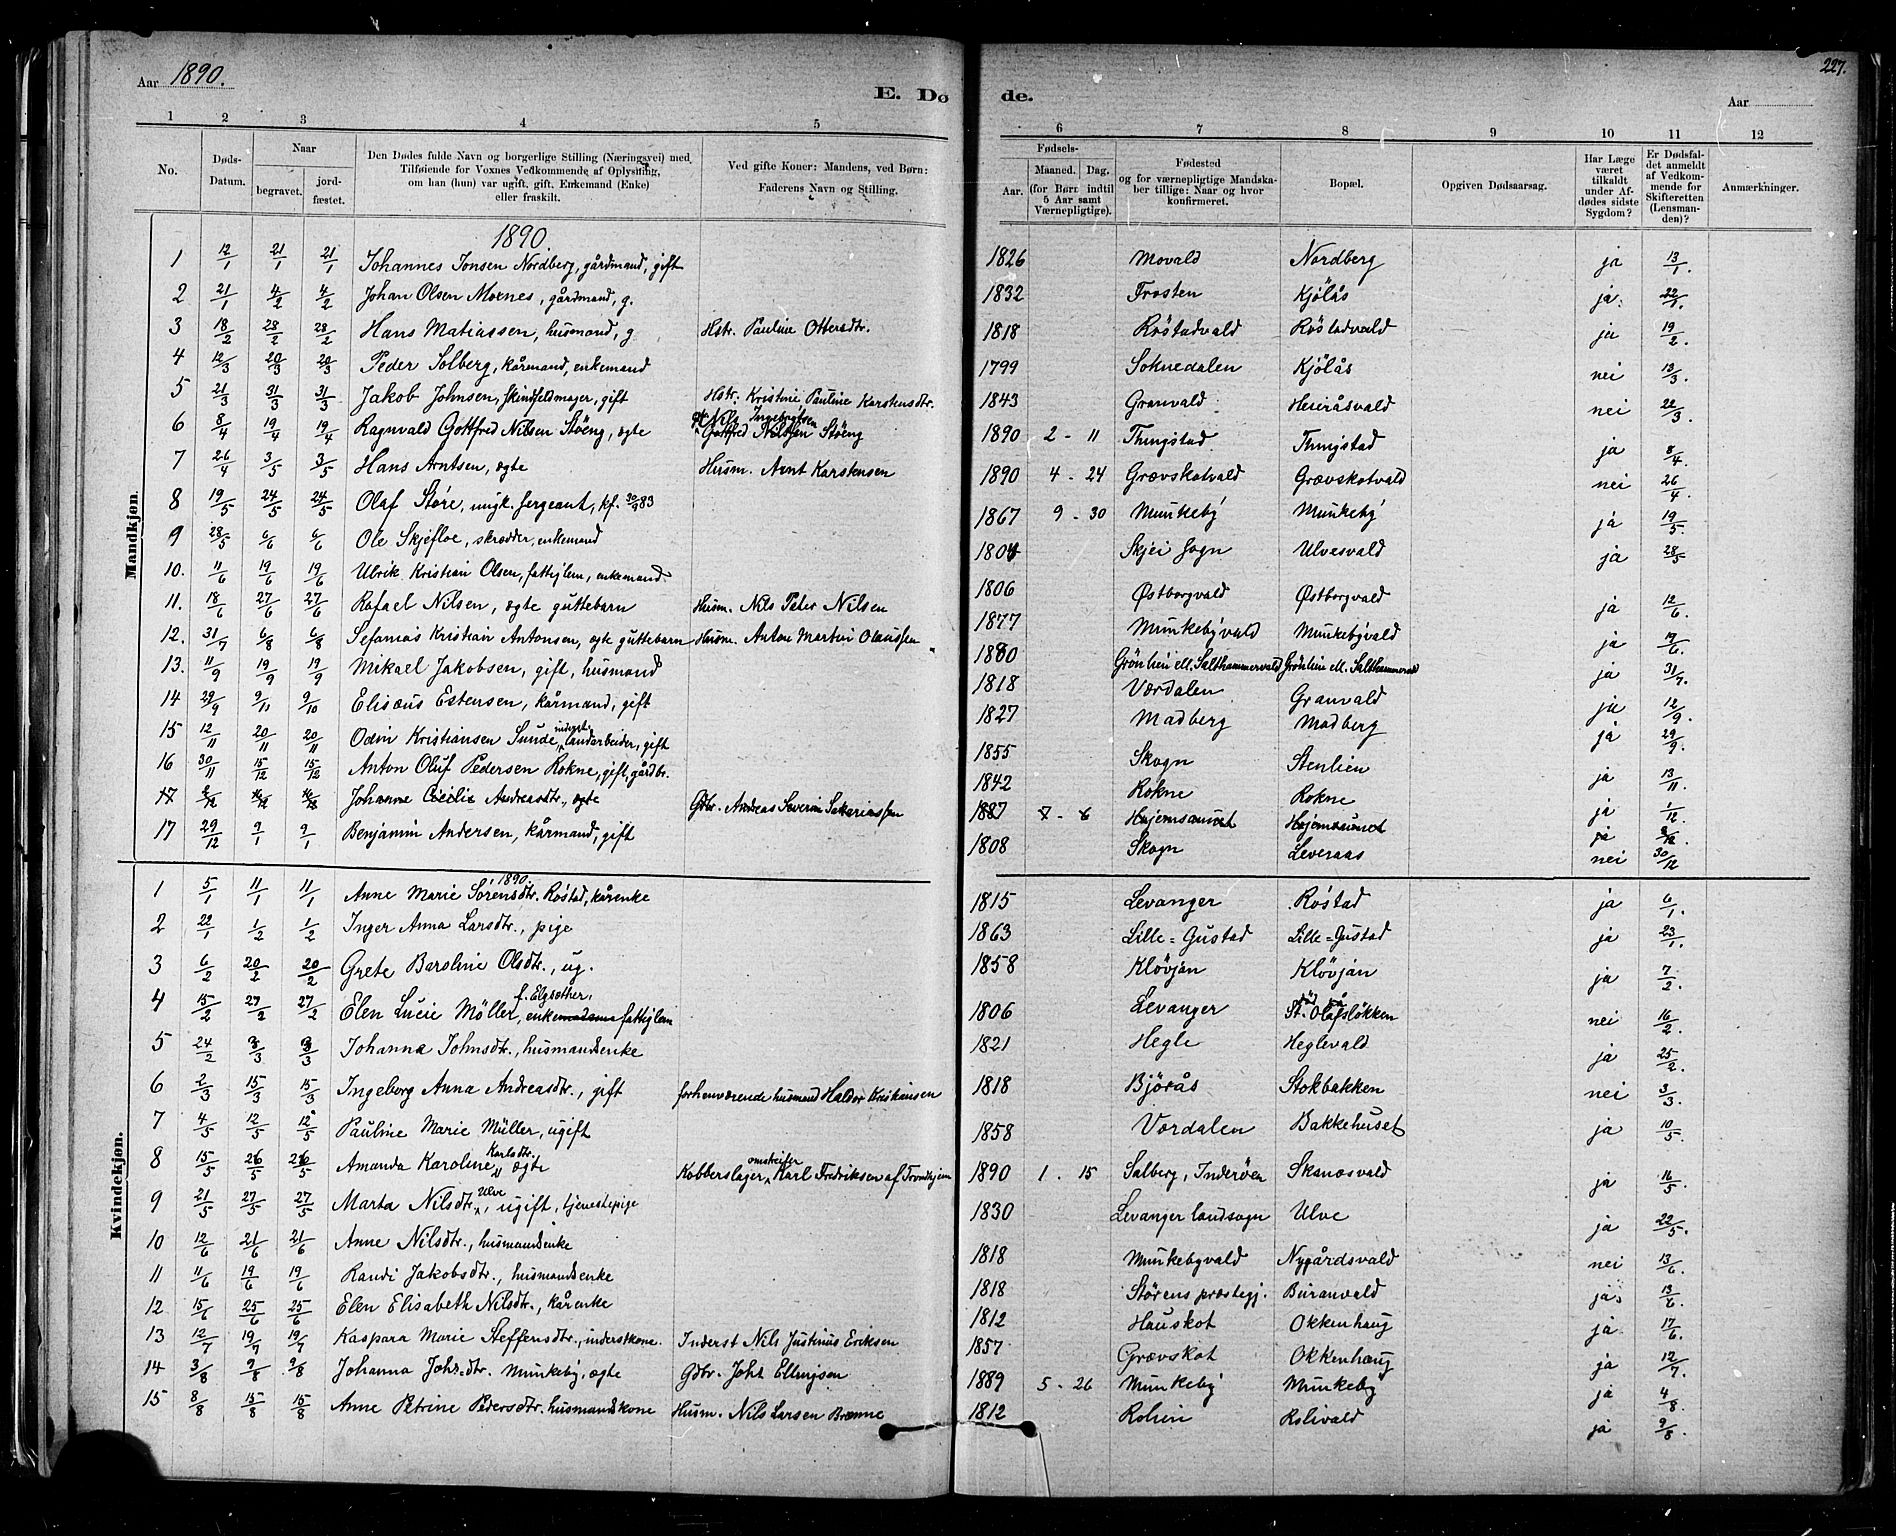 Aar 1890.
E. Dø
de.
227.
Aar
1 2 3 4 5 6 7 8 9 10 11 12
No. Døds-Datum. Naar begravet. jordfæstet. Den Dødes fulde Navn og borgerlige Stilling (Næringsvei) med Tilføiende for Voxnes Vedkommende af Oplysning, om han (hun) var ugift, gift, Enkemand (Enke) eller fraskilt. Ved gifte Koner: Mandens, ved Børn: Faderens Navn og Stilling. Fødsels- Aar. Maaned. Dag. (for Børn indtil 5 Aar samt Værnepligtige). Fødested og for værnepligtige Mandskaber tillige: Naar og hvor konfirmeret. Bopæl. Opgiven Dødsaarsag. Har Læge været tilkaldt under Afdødes sidste Sygdom? Er Dødsfaldet anmeldt af Vedkommende for Skifteretten (Lensmanden)? Anmærkninger.
Mandkjøn.
1890.
1 12/1 21/1 21/1 Johannes Jonsen Nordberg, gårdmand, gift 1826 Movald Nordberg ja 13/1.
2 21/1 4/2 4/2 Johan Olsen Moenes, gårdmand, g. 1832 Frosten Kjölås ja. 22/1.
3 18/2 28/2 28/2 Hans Matiassen, husmand, g Hstr. Pauline Ottersdtr. 1818 Röstadvald Röstadvald ja 19/2.
4 12/3 20/3 20/3 Peder Solberg, kårmand, enkemand 1799 Soknedalen Kjölås nei 13/3.
5 21/3 31/3 31/3 Jakob Johnsen, skindfeldmager, gift Hstr. Kristine Pauline Karstensdtr. 1843 Granvald Heiråsvald nei 22/3.
6 8/4 19/4 19/4 Ragnvald Gottfred Nilsen Stöeng, ægte Nils Ingebrigtsen Gottfred Nilssen Stöeng 1890 2 - 11 Thingstad Thingstad ja 8/4.
7 26/4 3/5 3/5 Hans Arntsen, ægte Husm. Arnt Karstensen 1890 4 - 24 Grævskotvald Grævskotvald nei 26/4.
8 19/5 24/5 24/5 Olaf Störe, ungk. sergeant, kf. 30/9 83 1867 9 - 30 Munkeby Munkeby ja 19/5.
9 28/5 6/6 6/6 Ole Skjefloe, skrædder, enkemand 1804 Skjei sogn Ulvesvald ja 28/5
10. 11/6 19/6 19/6 Ulrik Kristian Olsen, fattiglem, enkemand. 1806 Østborgvald Østborgvald ja 12/6.
11. 18/6 27/6 27/6 Rafael Nilsen, ægte guttebarn Husm. Nils Peter Nilsen 1877 Munkebyvald Munkebyvald ja 19/6.
12. 31/7 6/8 6/8 Sefanias Kristian Antonsen, ægte guttebarn Husm. Anton Martin Olaussen 1880 Grönlien ell. Salthammervald Grönlien ell. Salthammervald ja 31/7.
13. 11/9 19/9 19/9 Mikael Jakobsen, gift, husmand 1818 Værdalen Granvald ja 12/9.
14 29/9 9/11 9/10 Elisæus Estensen, kårmand, gift 1827 Madberg Madberg ja 29/9.
15 12/11 20/11 20/11 Odin Kristiansen Sunde, inderst landarbeider, gift 1855 Skogn Stenlien ja 13/11.
16 30/11 15/12 15/12 Anton Oluf Pedersen Rokne, gift, gårdbr. 1842 Rokne Rokne ja 1/12.
17 8/12 16/12 16/12 Johanne Cecilie Andreasdtr., ægte Gdbr. Andreas Severin Sakariassen 1887 7 - 6 Hojemsaunet Hojemsaunet ja 8/12.
17 29/12 9/1 9/1 Benjamin Andersen, kårmand, gift 1808 Skogn Leveraas nei 30/12
Kvindekjøn.
1890.
1 5/1 11/1 11/1 Anne Marie Sörensdtr. Röstad, kårenke 1815 Levanger Röstad ja 6/1.
2 22/1 1/2 1/2 Inger Anna Larsdtr., pige 1863 Lille=Gustad Lille=Gustad ja 23/1.
3 6/2 20/2 20/2 Grete Baroline Olsdtr., ug. 1858 Klövjan Klövjan ja 7/2.
4 15/2 27/2 27/2 Elen Lucie Möller, f. Elgsæther, enkemadame fattiglem 1806 Levanger St. Olafslökken nei 16/2.
5 24/2 3/3 3/3 Johanna Johnsdtr., husmandsenke 1821 Hegle Heglevald ja 25/2.
6 2/3 15/3 15/3 Ingeborg Anna Andreasdtr., gift forhenværende husmand Haldor Kristiansen 1818 Björås Stokbakken nei 3/3.
7 4/5 12/5 12/5 Pauline Marie Müller, ugift 1858 Værdalen Bakkehuset ja 10/5.
8 15/5 26/5 26/5 Amanda Karoline Karlsdtr., ægte Kobberslager, omstreifer Karl Fredriksen af Trondhjem 1890 1 . 15 Salberg, Inderöen Skanesvald ja 16/5.
9 21/5 27/5 27/5 Marta Nilsdtr. Ulve, ugift, tjenestepige 1830 Levanger landsogn Ulve ja 22/5.
10 12/6 21/6 21/6 Anne Nilsdtr., husmandsenke 1818 Munkebyvald Nygårdsvald nei 13/6.
11 11/6 19/6 19/6 Randi Jakobsdtr., husmandsenke 1818 Störens præstegj. Buranvald ja. 13/6.
12 15/6 25/6 25/6 Elen Elisabeth Nilsdtr., kårenke 1812 Hauskot Okkenhaug ja 17/6.
13 12/7 19/7 19/7 Kaspara Marie Steffensdtr., inderstkone. Inderst Nils Justinus Eriksen 1857 Grævskot Okkenhaug ja 12/7.
14 3/8 9/8 9/8 Johanna Johs.dtr. Munkeby, ægte Gdbr. Johs Ellingsen 1889 5 - 26 Munkeby Munkeby ja 4/8.
15 8/8 15/8 15/8 Anne Petrine Pedersdtr. husmandskone Husm. Nils Larsen Brenne 1812 Rolien Rolivald ja 9/8.